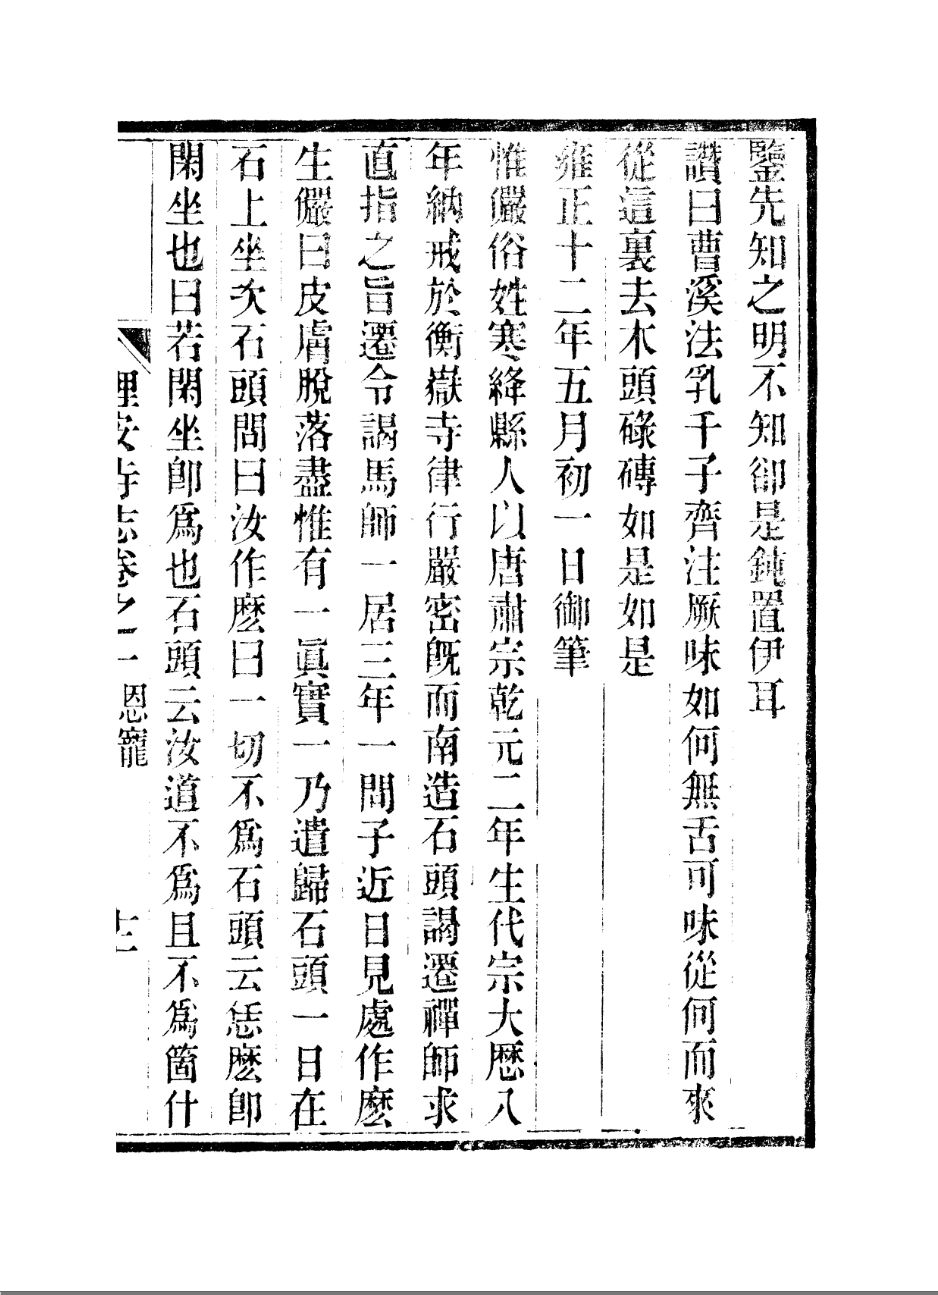 鑒先知之明不知卻是鈍置伊耳
讚曰曹溪法乳千子齊注厥味如何無舌可味從何而來
從這裏去木頭碌磚如是如是
雍正十二年五月初一日御筆
惟儼俗姓寒絳縣人以唐肅宗乾元二年生代宗大歷八
年納戒於衡嶽寺律行嚴密旣而南造石頭謁遷禪師求
直指之旨遷令謁馬師一居三年一問子近日見處作麽
生儼曰皮膚脫落盡惟有一眞實一乃遣歸石頭一日在
石上坐次石頭問曰汝作麽曰一切不爲石頭云恁麽卽
閑坐也曰若閑坐卽爲也石頭云汝道不爲且不爲箇什
理安寺志卷之一 恩寵 十二